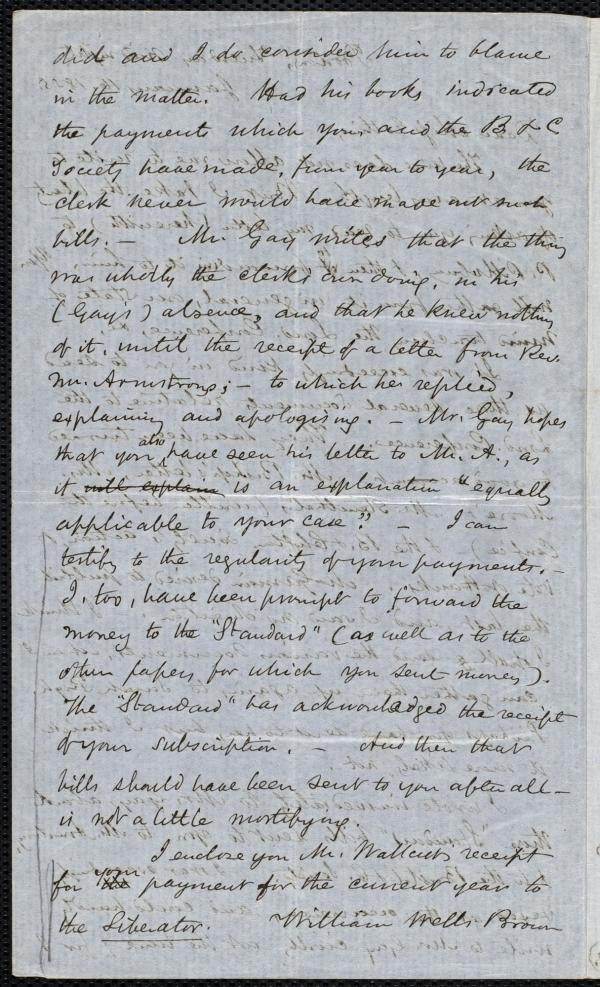 did and I do consider him to blame
in the matter. Had his books indicated
the payment which you, and the B. & C
Society have made, from year to year, the
clerk never would have made out such
bills. — Mr. Gay writes that the thing
was wholly the clerk's own doing, in his
(Gay's) absence, and that he knew nothing
of it, until the receipt of a letter from Rev.
Mr. Armstrong; — to which he replied,
explaining and apologising. — Mr. Gay hopes
that you also have seen his letter to Mr. A., as
it will explain is an explanation "equally
applicable to your case." — I can
testify to the regularity of your payments. —
I, too, have been prompt to forward the
money to the "Standard" (as well as to the
other papers for which you sent money).
The "Standard" has acknowledged the receipt
of your subscription. — And then that
bills should have been sent to you after all —
is not a little mortifying.
I enclose you Mr. Wallcut's receipt
for your payment for the current year to
the Liberator. William Wells Brown